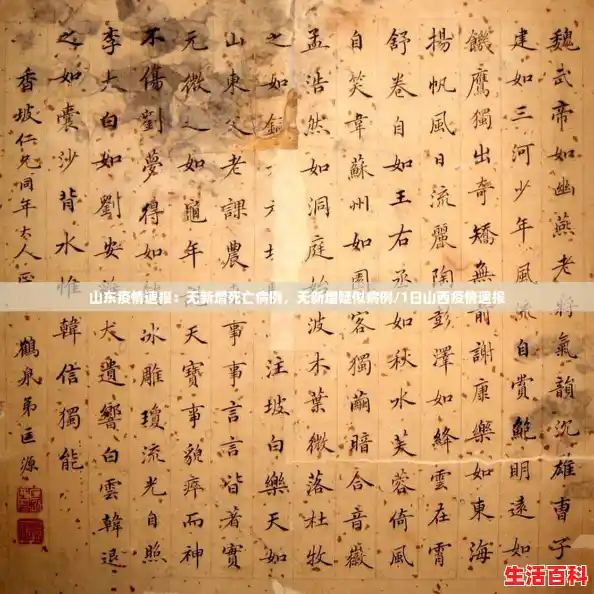 魏武帝如幽燕老將氣韻沉雄曹子
建如三河少年風流自賞鮑明遠如
饑鷹獨出奇矯無前謝康樂如東海
揚帆風日流麗陶彭澤如絳雲在霄
舒卷自如王右丞如秋水芙蓉倚風
自笑韋蘇州如園客獨繭暗合音徽
孟浩然如洞庭始波木葉微落杜牧
之如銅注坡白樂天如
山東父老課農事事言言皆著實
元微之如龜年說天寶事貌瘁而神
不傷劉夢得如冰雕瓊流光自照
李太白如劉安犬遺響白雲韓退
之如囊沙背水惟韓信獨能
香坡仁兄同年大人正
鶴泉弟匡源
山东疫情速报：无新增死亡病例，无新增疑似病例/1日山西疫情速报
生活百科